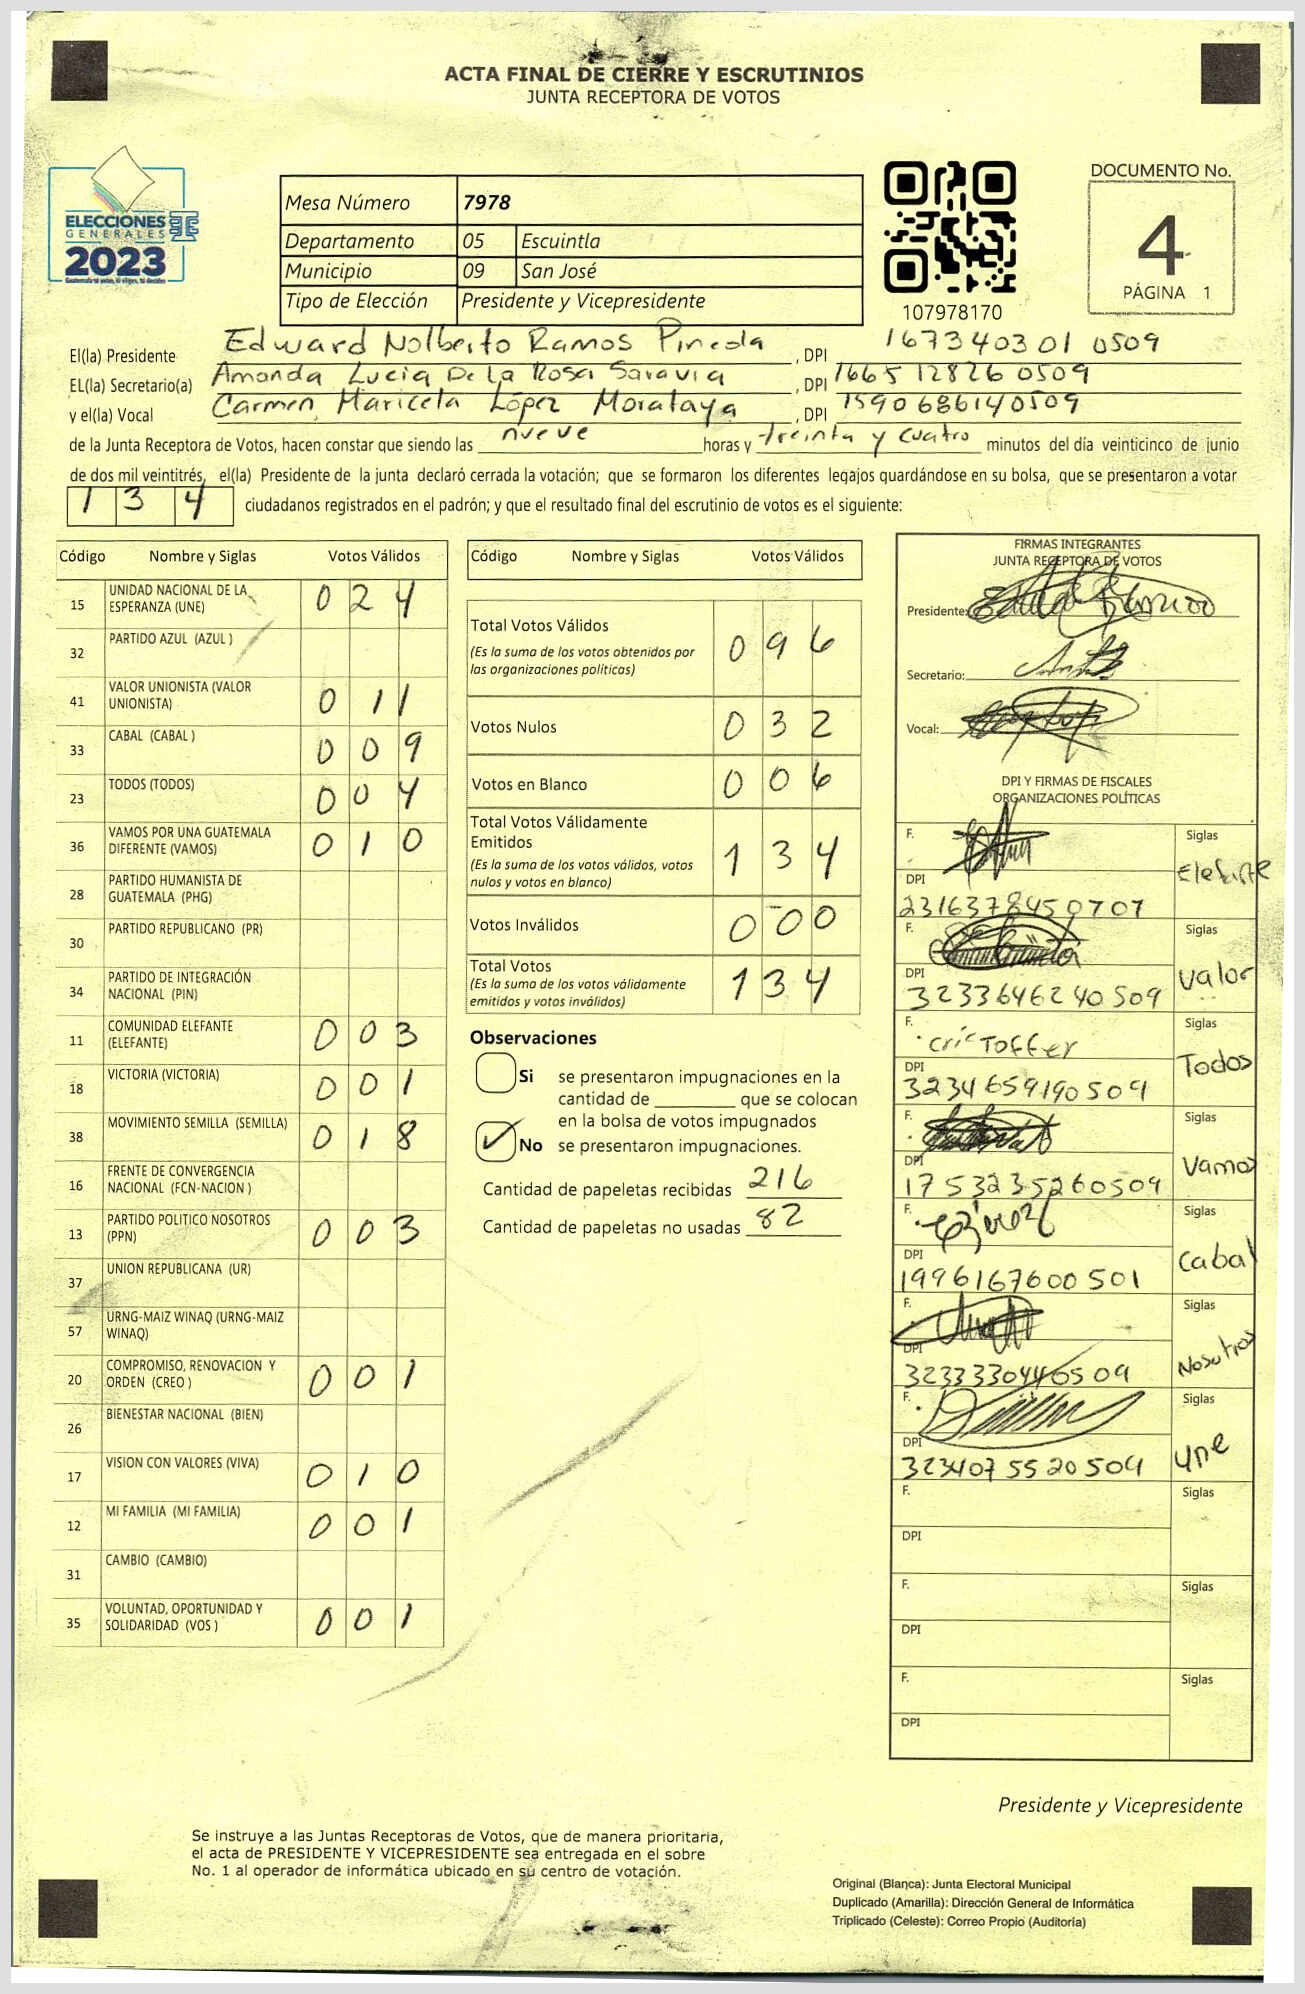 ACTA FINAL DE CIERRE Y ESCRUTINIOS
JUNTA RECEPTORA DE VOTOS
ELECCIONES
GENERALES
2023
Mesa Número 7978
Departamento 05 Escuintla
Municipio 09 San José
Tipo de Elección Presidente y Vicepresidente
107978170
DOCUMENTO No.
4
PÁGINA 1
El(la) Presidente Edward Nolberto Ramos Pineda , DPI 1673403010509
EL(la) Secretario(a) Amanda Lucia De La Rosa Saravia , DPI 1665128260509
y el(la) Vocal Carmen Maricela López Morataya , DPI 1590686140509
de la Junta Receptora de Votos, hacen constar que siendo las nueve horas y treinta y cuatro minutos del día veinticinco de junio
de dos mil veintitrés, el(la) Presidente de la junta declaró cerrada la votación; que se formaron los diferentes legajos quardándose en su bolsa, que se presentaron a votar
134 ciudadanos registrados en el padrón; y que el resultado final del escrutinio de votos es el siguiente:
Código Nombre y Siglas Votos Válidos
15 UNIDAD NACIONAL DE LA ESPERANZA (UNE) 024
32 PARTIDO AZUL (AZUL )
41 VALOR UNIONISTA (VALOR UNIONISTA) 011
33 CABAL (CABAL ) 009
23 TODOS (TODOS) 004
36 VAMOS POR UNA GUATEMALA DIFERENTE (VAMOS) 010
28 PARTIDO HUMANISTA DE GUATEMALA (PHG)
30 PARTIDO REPUBLICANO (PR)
34 PARTIDO DE INTEGRACIÓN NACIONAL (PIN)
11 COMUNIDAD ELEFANTE (ELEFANTE) 003
18 VICTORIA (VICTORIA) 001
38 MOVIMIENTO SEMILLA (SEMILLA) 018
16 FRENTE DE CONVERGENCIA NACIONAL (FCN-NACION )
13 PARTIDO POLITICO NOSOTROS (PPN) 003
37 UNION REPUBLICANA (UR)
57 URNG-MAIZ WINAQ (URNG-MAIZ WINAQ)
20 COMPROMISO, RENOVACION Y ORDEN (CREO ) 001
26 BIENESTAR NACIONAL (BIEN)
17 VISION CON VALORES (VIVA) 010
12 MI FAMILIA (MI FAMILIA) 001
31 CAMBIO (CAMBIO)
35 VOLUNTAD, OPORTUNIDAD Y SOLIDARIDAD (VOS ) 001
Código Nombre y Siglas Votos Válidos
Total Votos Válidos 096
(Es la suma de los votos obtenidos por
las organizaciones políticas)
Votos Nulos 032
Votos en Blanco 006
Total Votos Válidamente
Emitidos 134
(Es la suma de los votos válidos, votos
nulos y votos en blanco)
Votos Inválidos 000
Total Votos 134
(Es la suma de los votos válidamente
emitidos y votos inválidos)
Observaciones
Si se presentaron impugnaciones en la
cantidad de ________ que se colocan
en la bolsa de votos impugnados
No se presentaron impugnaciones.
Cantidad de papeletas recibidas 216
Cantidad de papeletas no usadas 82
FIRMAS INTEGRANTES
JUNTA RECEPTORA DE VOTOS
Presidente:
Secretario:
Vocal:
DPI Y FIRMAS DE FISCALES
ORGANIZACIONES POLÍTICAS
F. Siglas Elefante
DPI 2316378450707
F. Siglas Valor
DPI 3233646240509
F. Cristoffer Siglas Todos
DPI 3234659190509
F. Siglas Vamos
DPI 1753235260509
F. Siglas Cabal
DPI 1996167600501
F. Siglas Nosotros
DPI 3233330440509
F. Siglas Une
DPI 3234075520509
F. Siglas
DPI
F. Siglas
DPI
F. Siglas
DPI
Presidente y Vicepresidente
Se instruye a las Juntas Receptoras de Votos, que de manera prioritaria,
el acta de PRESIDENTE Y VICEPRESIDENTE sea entregada en el sobre
No. 1 al operador de informática ubicado en su centro de votación.
Original (Blanca): Junta Electoral Municipal
Duplicado (Amarilla): Dirección General de Informática
Triplicado (Celeste): Correo Propio (Auditoría)